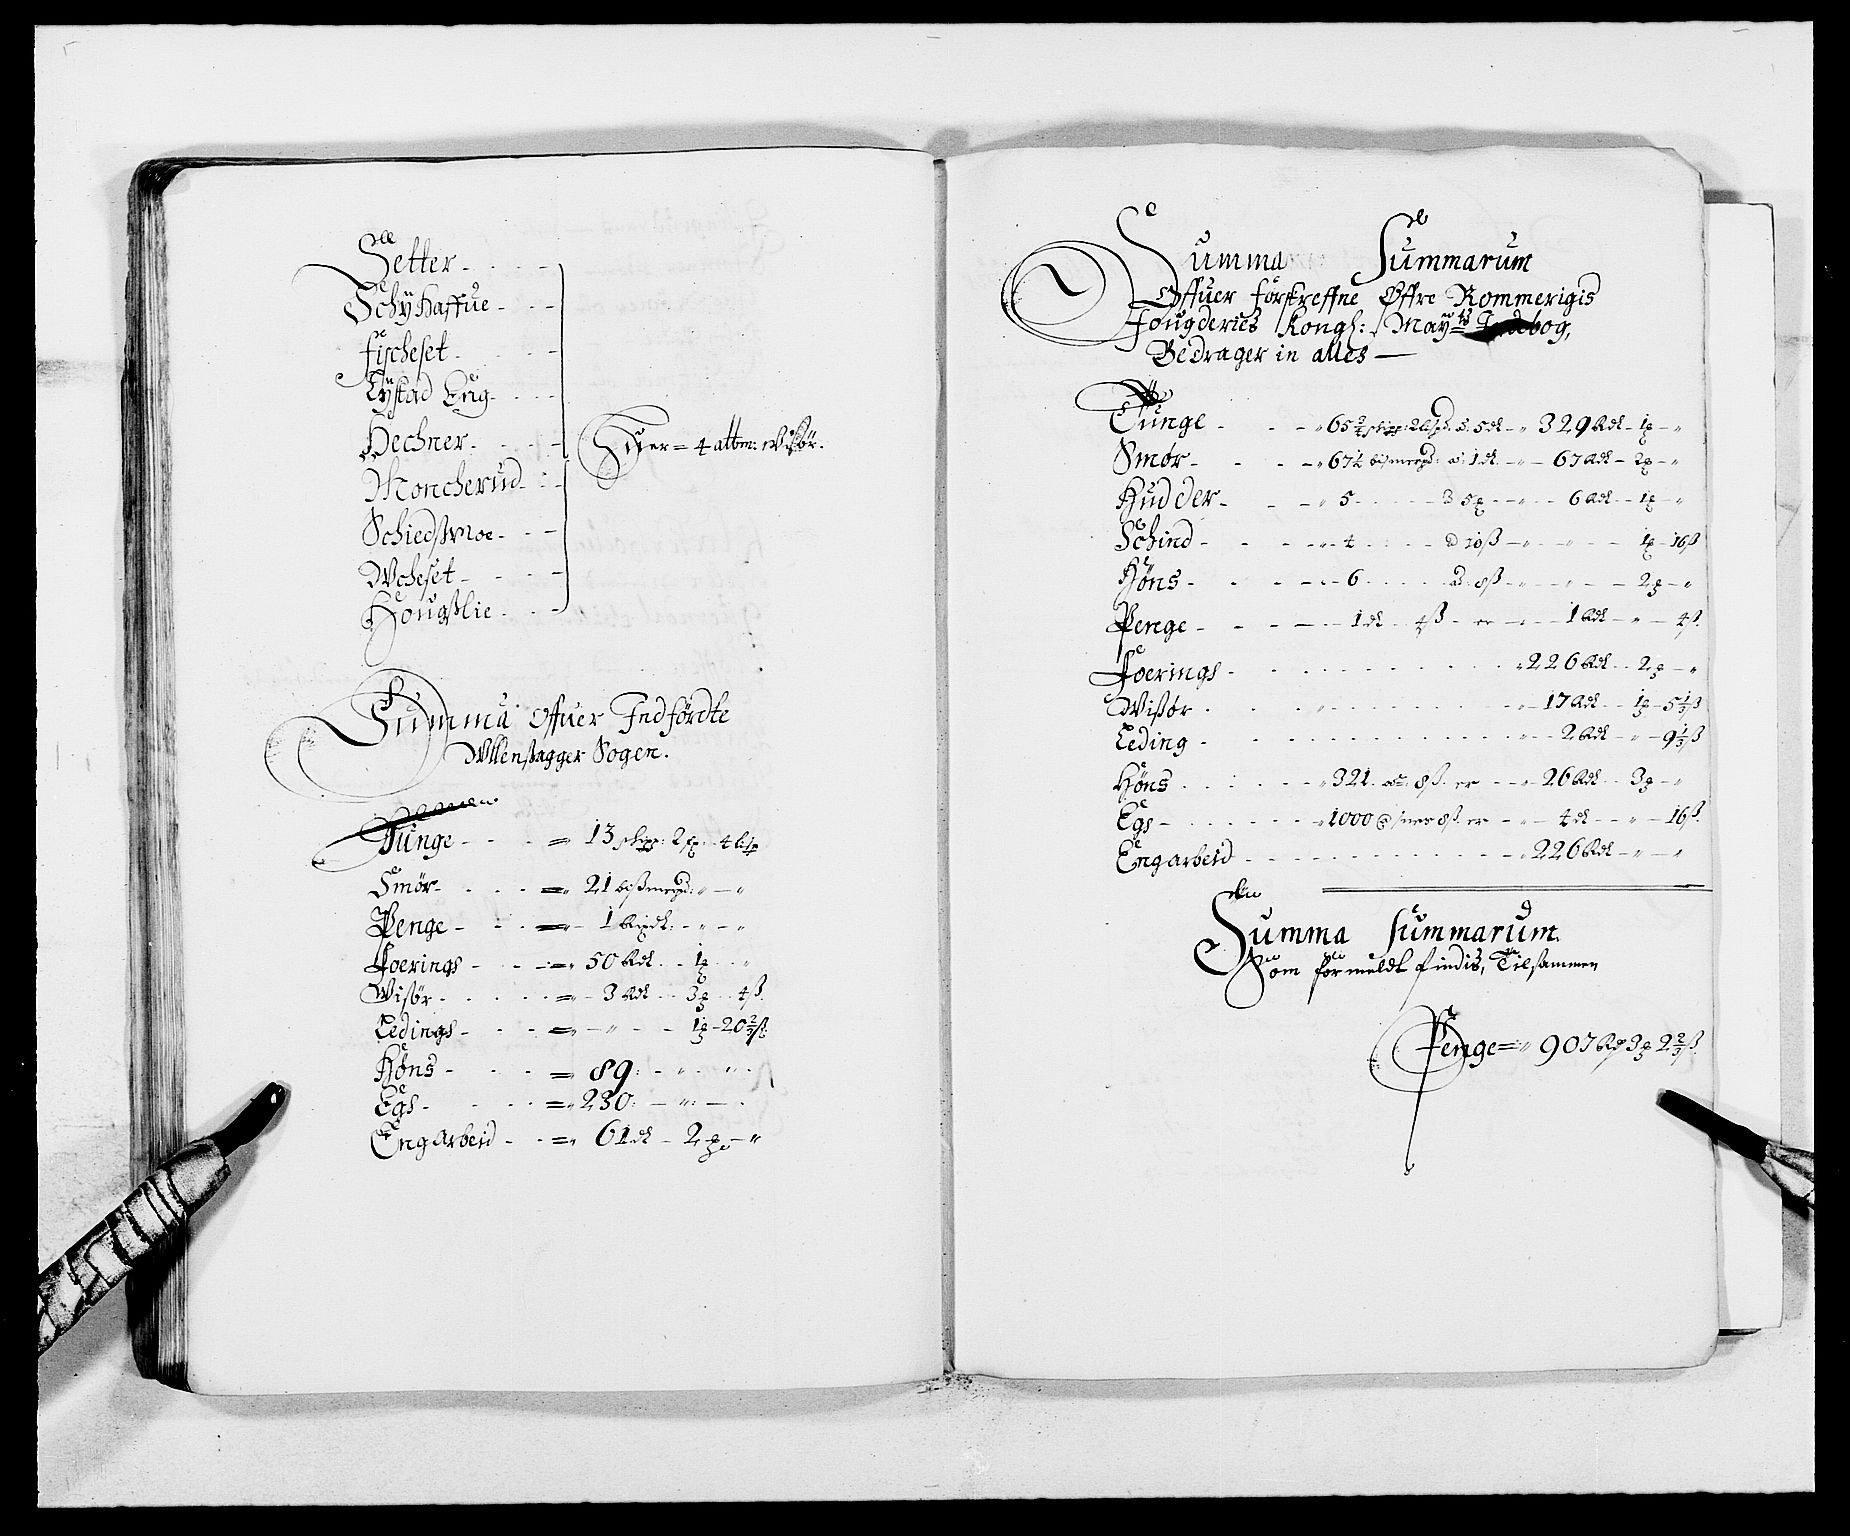 Setter
Schÿhaffue
Fischeset
Tÿstad Eng
Hechner
Moncherud
Schiedsmoe
Wcheset
Hougslie
Huer = 4 attm: Wisør.
Summa offuer Indførdte
Wllensagger Sogen.
Tunge = 13 schipp: 2 4 lisp
Smør = 21 bismerpd: " — "
Penge = 1 Rixdl: " — "
Foerings = 50 Rdl 1
Wisør = 3 Rdl 3 4 ß
Ledings = " 1 - 20 2/3 ß
Høns = 89
Egs = 230
Engarbeid = 61 dl 2 — "
Summa Summarum
Offuer Forskreffne Øffre Rommerigis
Fougderies Kongl: May: Jordebog,
Bedrager in alles —
Tunge 65 5 dl " 329 Rdl 1 "
Smør 67 1/2 bismerpd: a: 1 dl " 67 Rdl 2 "
Hudder 5 5 " 6 Rdl 1 "
Schind 4 a 10 ß " " 1 16 ß
Høns 6 a 8 ß " " 2 "
Penge 1 dl 4 ß er 1 Rdl " 4 ß
Foerings 226 Rdl 2 "
Wisør 17 Rdl 1 5 1/3 ß
Leding 2 Rdl " 9 1/3 ß
Høns 321 8 ß er 26 Rdl 3 "
Egs 1000 8 ß er 4 dl " 16 ß
Engarbeid 226 Rdl " "
Summa Summarum
Som formeldt findis, Tilsammen
Penge = 907 Rd 3 2 2/3 ß